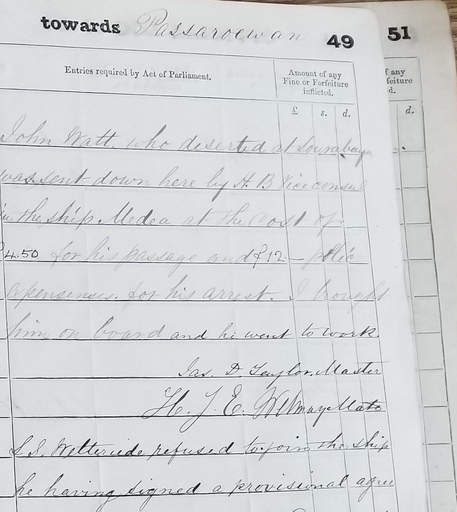 towards Passaroewan 49
51
Entries required by Act of Parliament.
Amount of any
Fine or Forfeiture
inflicted.
£ s. d.
f any
feiture
d.
d.
John Watt, who deserted at Sourabaya
was sent down here by H. B Vice consul
in the ship Medea at the cost of
4.50 for his passage and £12 – polic
expensenses. for his arrest. I brought
him on board and he went to work
Jas. D Taylor. Master
H. J. E. Mate
refused to join the ship
he having signed a provisional agree